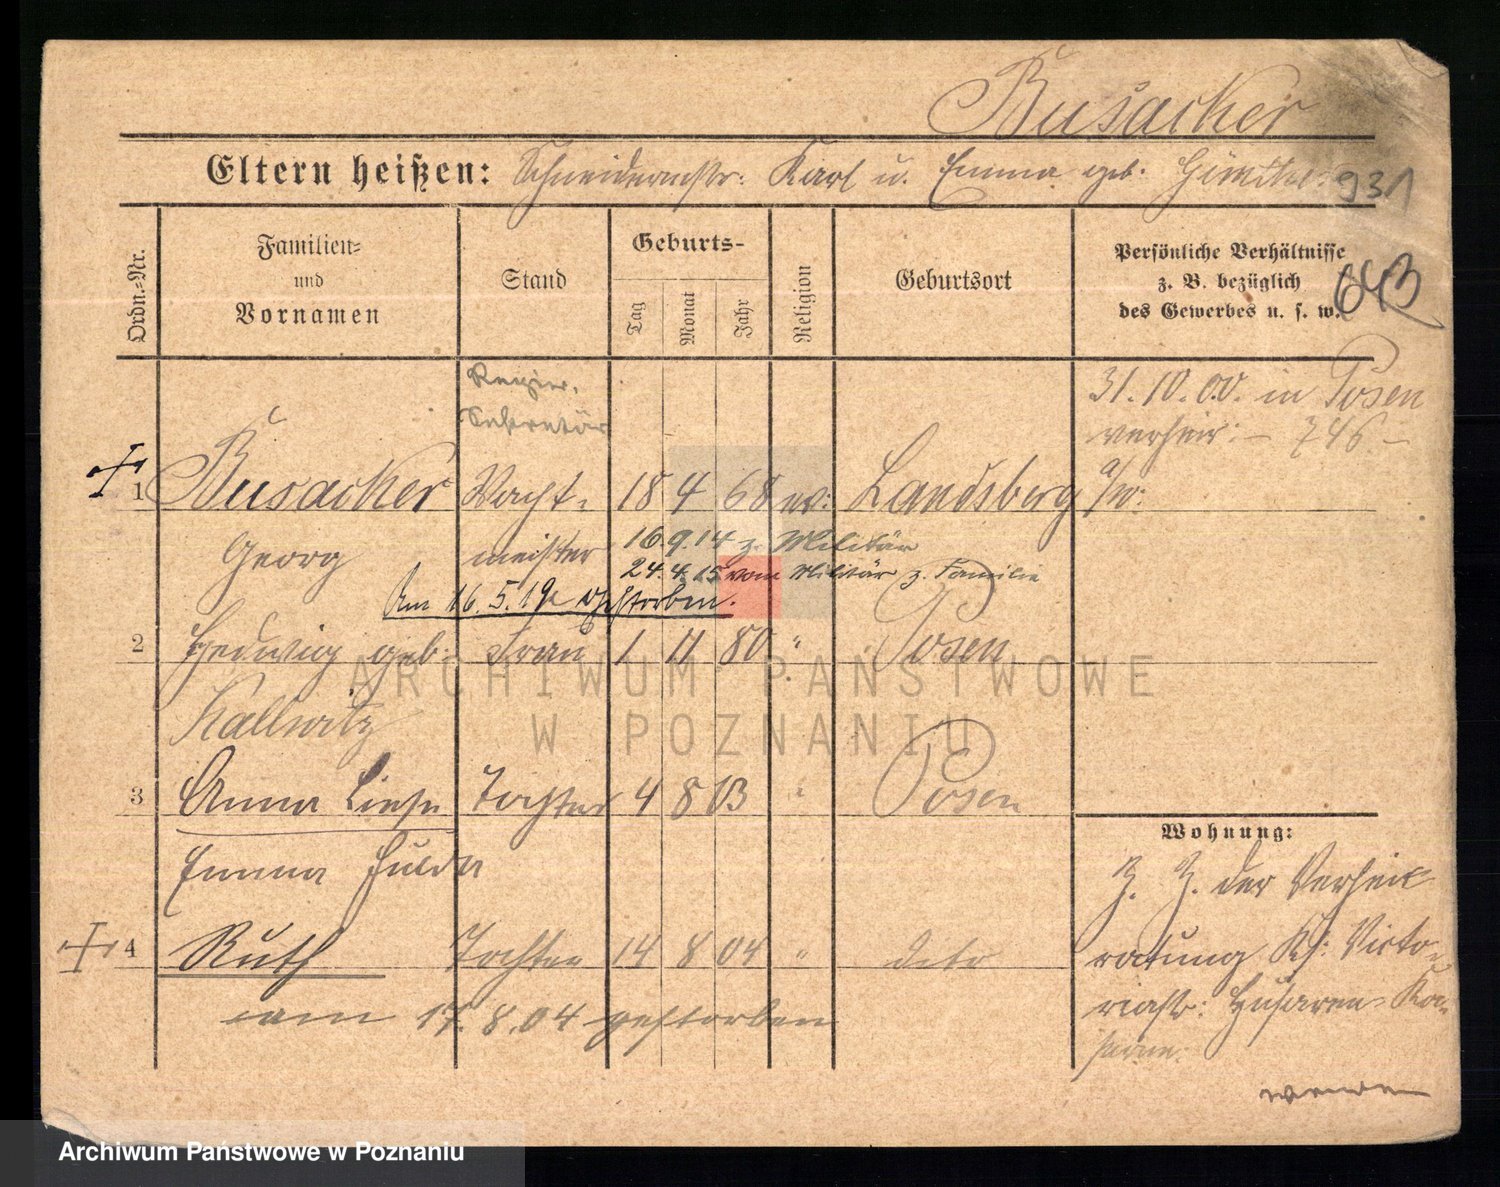 Busacker
Eltern heißen: Schneidermstr: Karl u. Emma geb. 931
Ordn.-Nr.
Familien-
und
Vornamen
Stand
Geburts-
Tag
Monat
Jahr
Religion
Geburtsort
Persönliche Verhältnisse
z. B. bezüglich
des Gewerbes u. s. w.
643
Regier.
Sekretär
31.10.00. in Posen
verheir: – 746 –
1 Busacker Wacht- 18 4 68 ev: Landsberg a/W:
Georg meister 16.9.14 z. Militär
24.4.15 vom Militär z. Familie
Am 16.5.19 verstorben.
2 Hedwig geb. Frau 1 11 80 " Posen
Kallwitz
3 Anna Liese Tochter 4 8 03 " Posen
Emma Hulda
4 Ruth Tochter 14 8 04 " dito
am 17.8.04 gestorben
Wohnung:
Z. Z. der Verhei-
ratung Kg: Victo-
riastr: Husaren-Ka-
serne.
ARCHIWUM PAŃSTWOWE
W POZNANIU
Archiwum Państwowe w Poznaniu